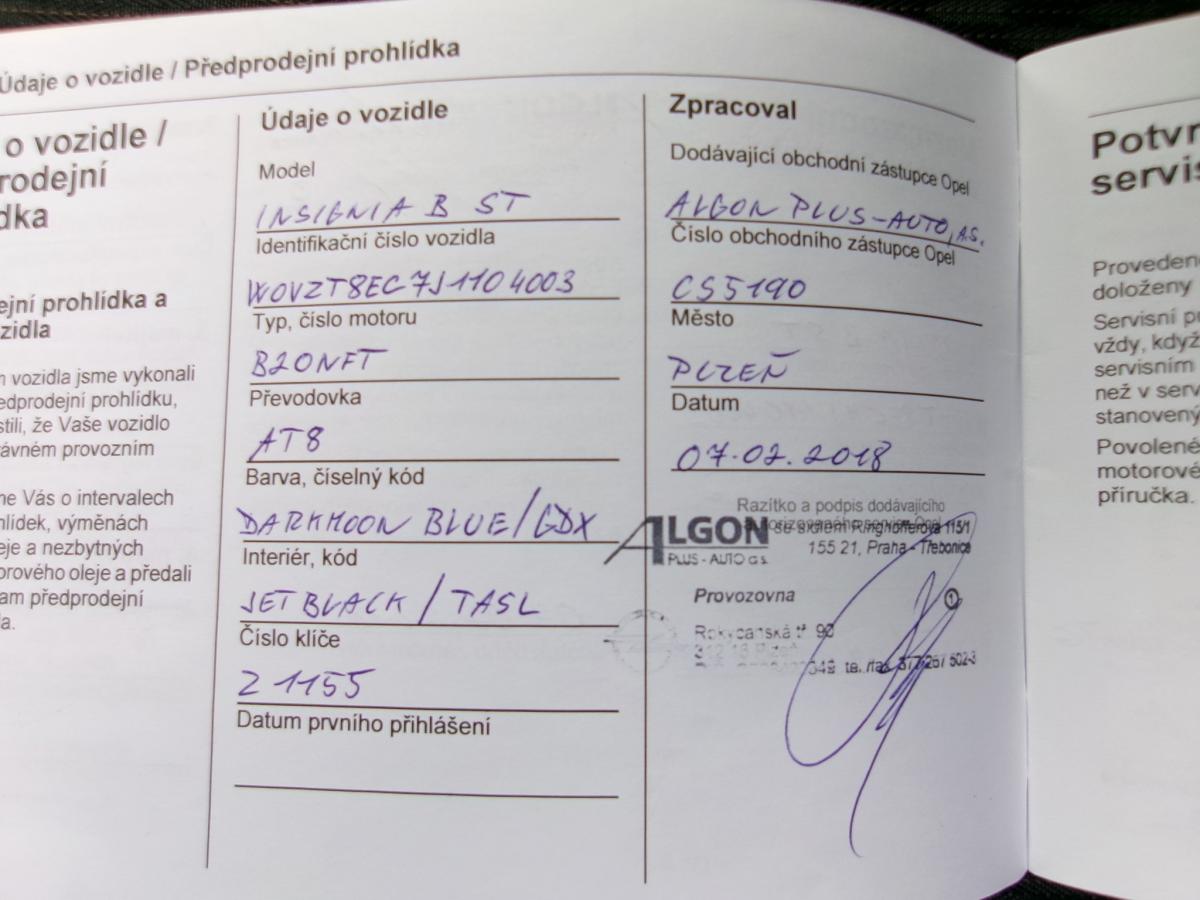 Údaje o vozidle / Předprodejní prohlídka
o vozidle /
rodejní
dka
ejní prohlídka a
zidla
m vozidla jsme vykonali
edprodejní prohlídku,
stili, že Vaše vozidlo
rávném provozním
me Vás o intervalech
hlídek, výměnách
eje a nezbytných
orového oleje a předali
am předprodejní
a.
Údaje o vozidle
Model
INSIGNIA B ST
Identifikační číslo vozidla
W0VZT8EC7J1104003
Typ, číslo motoru
B20NFT
Převodovka
AT8
Barva, číselný kód
DARKMOON BLUE/GDX
Interiér, kód
JET BLACK / TASL
Číslo klíče
Z1155
Datum prvního přihlášení
Zpracoval
Dodávající obchodní zástupce Opel
ALGON PLUS-AUTO, A.S.
Číslo obchodního zástupce Opel
CS5190
Město
PLZEŇ
Datum
07.02.2018
Razítko a podpis dodávajícího
autorizovaného servisu Opel
ALGON
PLUS - AUTO a.s.
se sídlem Ringhofferova 115/1
155 21, Praha - Třebonice
Provozovna
1
Rokycanská tř. 90
312 18 Plzeň
049 tel./fax 377 267 502-3
Potvr
servis
Provedené
doloženy
Servisní p
vždy, když
servisním
než v serv
stanovený
Povolené
motorové
příručka.